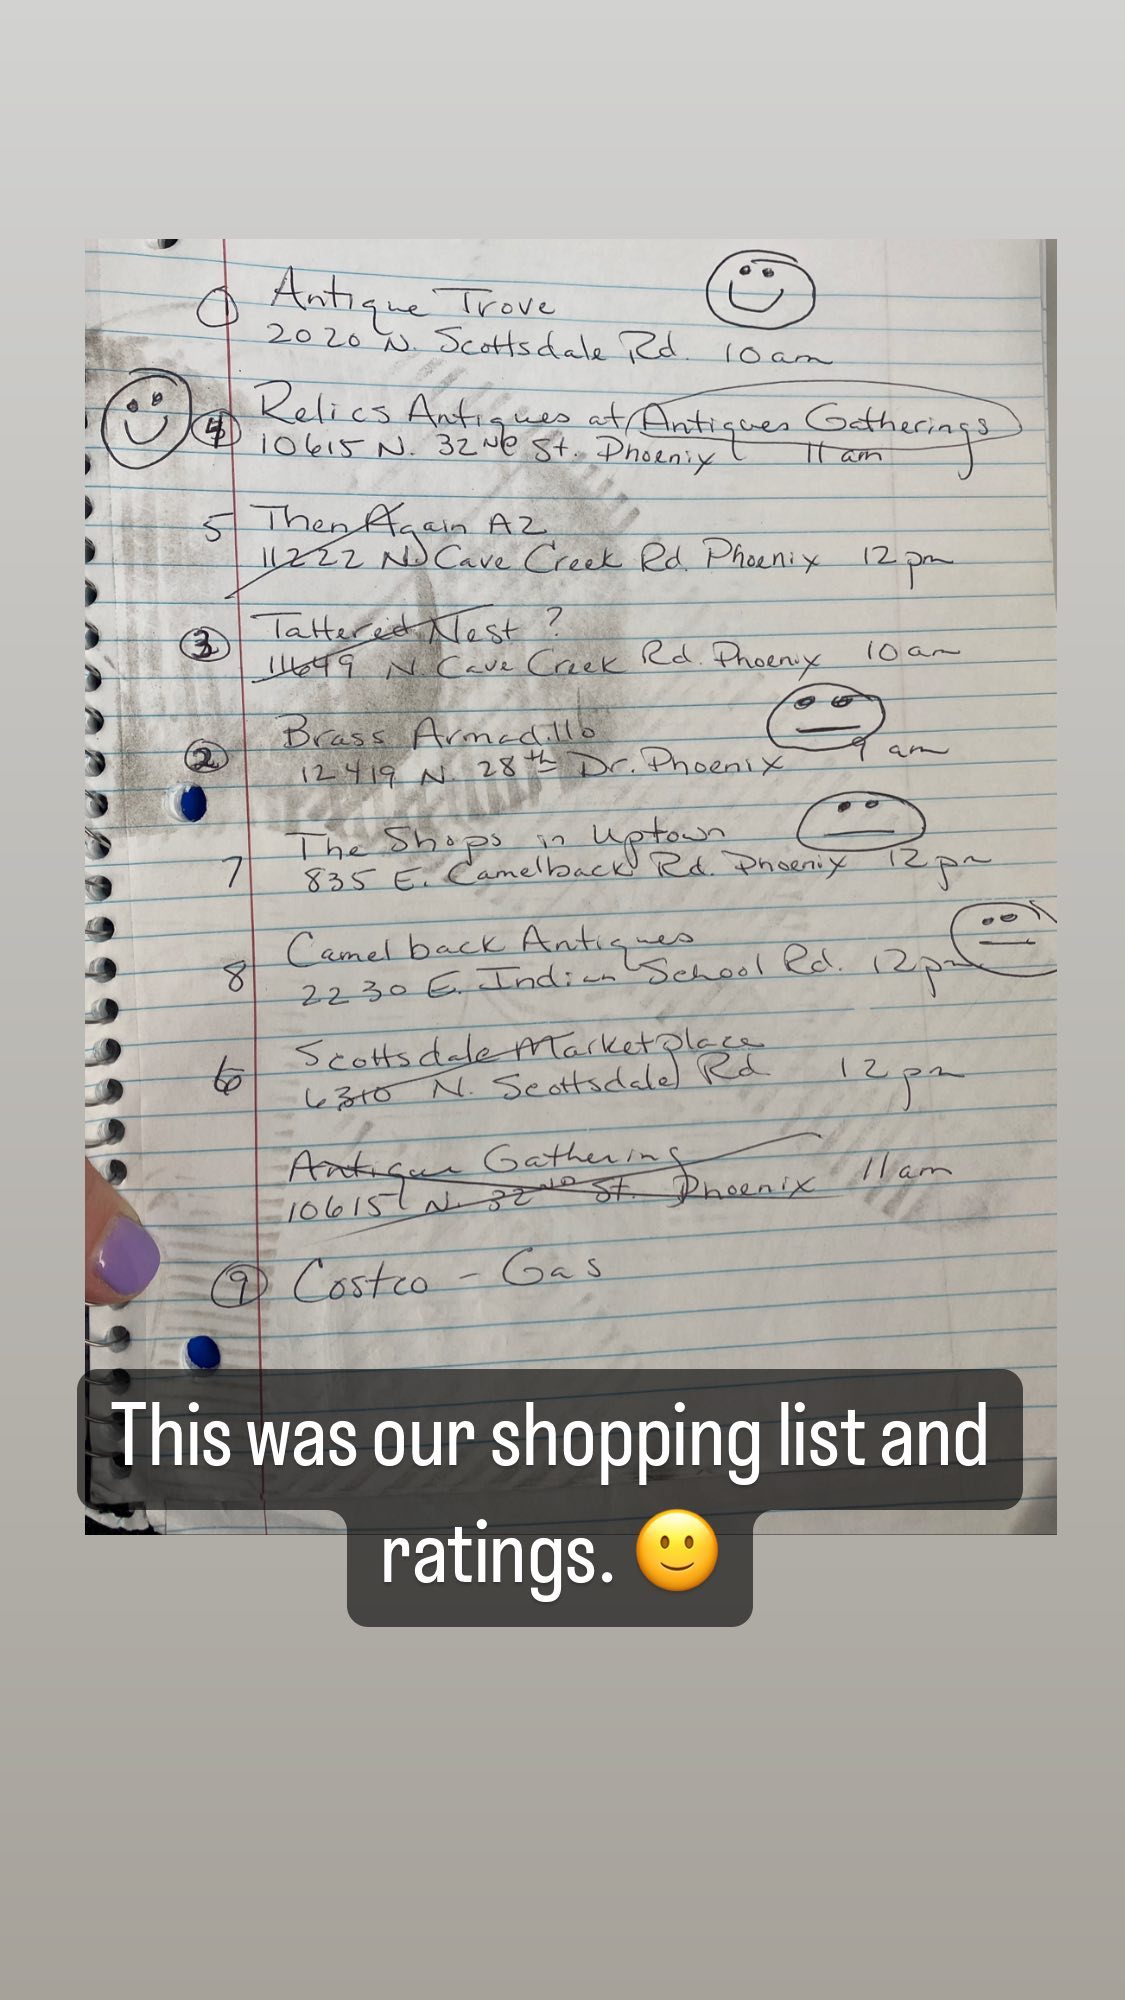 1 Antique Trove
2020 N. Scottsdale Rd. 10am
4 Relics Antiques at Antiques Gatherings
10615 N. 32ND St. Phoenix 11 am
5 Then Again AZ
11222 N. Cave Creek Rd. Phoenix 12pm
3 Tattered Nest ?
11649 N. Cave Creek Rd. Phoenix 10am
2 Brass Armadillo
12419 N. 28th Dr. Phoenix 9 am
The Shops in Uptown
7 835 E. Camelback Rd. Phoenix 12pm
Camelback Antiques
8 2230 E. Indian School Rd. 12pm
Scottsdale Marketplace
6 6310 N. Scottsdale Rd 12pm
Antique Gathering
10615 N. 32ND St. Phoenix 11am
9 Costco - Gas
This was our shopping list and
ratings. 🙂